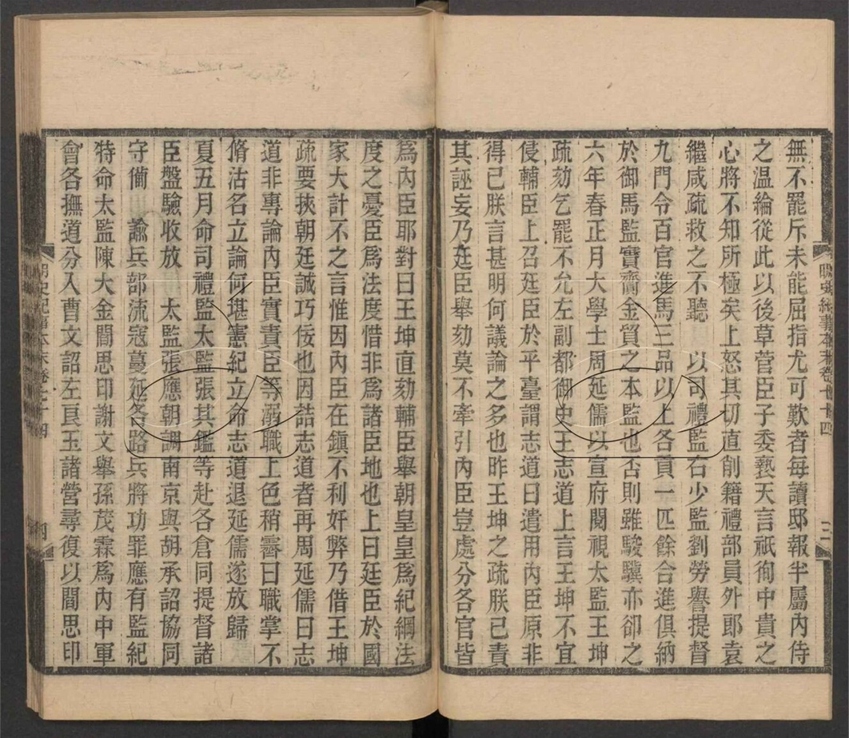 無不罷斥未能屈指尤可歎者每讀邸報半屬內侍
之温綸從此以後草菅臣子委褻天言祇徇中貴之
心將不知所極矣上怒其切直削籍禮部員外郎袁
繼咸疏救之不聽 以司禮監右少監劉勞譽提督
九門令百官進馬三品以上各貢一匹餘合進俱納
於御馬監實齎金貿之本監也否則雖駿驥亦卻之
六年春正月大學士周延儒以宣府閱視太監王坤
疏劾乞罷不允左副都御史王志道上言王坤不宜
侵輔臣上召廷臣於平臺謂志道曰遣用內臣原非
得已朕言甚明何議論之多也昨王坤之疏朕已責
其誣妄乃廷臣舉劾莫不牽引內臣豈處分各官皆
爲內臣耶對曰王坤直劾輔臣舉朝皇皇爲紀綱法
度之憂臣爲法度惜非爲諸臣地也上曰廷臣於國
家大計不之言惟因內臣在鎮不利奸弊乃借王坤
疏要挾朝廷誠巧佞也因詰志道者再周延儒曰志
道非專論內臣實責臣等溺職上色稍霽曰職掌不
脩沽名立論何堪憲紀立命志道退延儒遂放歸
夏五月命司禮監太監張其鑑等赴各倉同提督諸
臣盤驗收放 太監張應朝調南京與胡承詔協同
守備 諭兵部流寇蔓延各路兵將功罪應有監紀
特命太監陳大金閻思印謝文舉孫茂霖爲內中軍
會各撫道分入曹文詔左良玉諸營尋復以閻思印
明史紀事本末卷七十四
三
明史紀事本末卷七十四
四